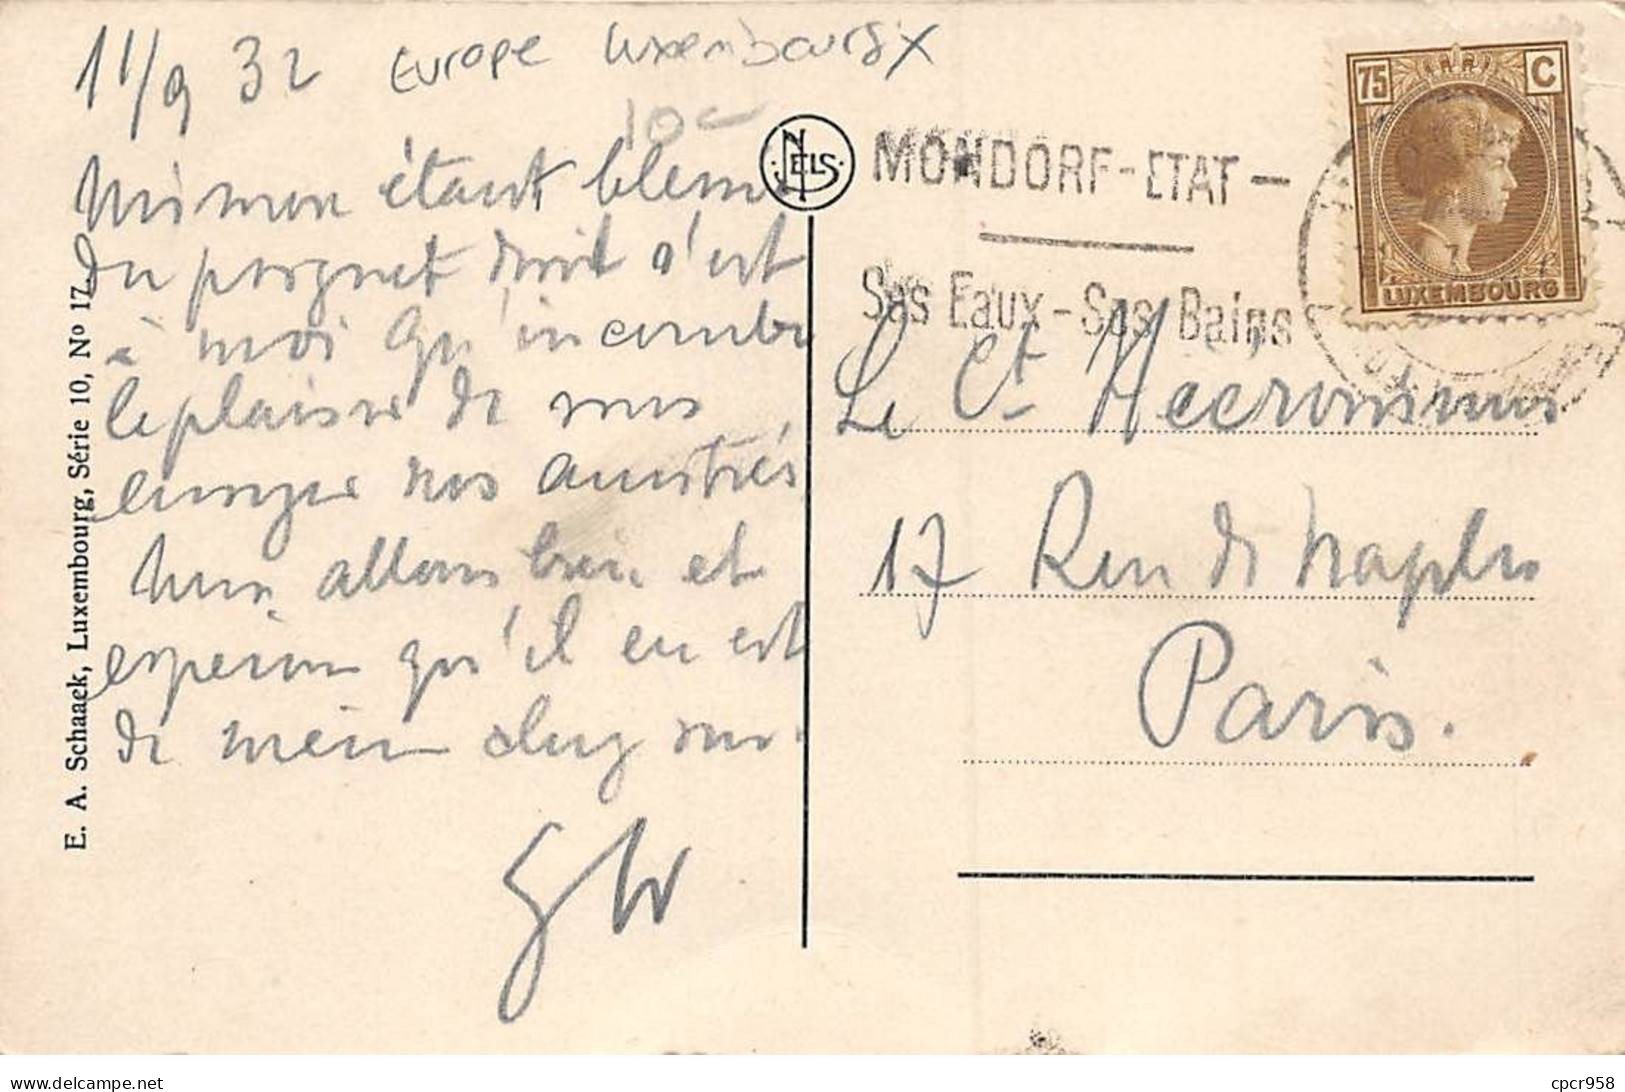 11/9 32 Europe Luxembourg X
10€
Mimon étant blessé
du poignet droit c'est
à moi qu'incombe
le plaisir de vous
envoyer nos amitiés
Nous allons bien et
espérons qu'il en est
de même chez vous.
GW
E. A. Schaack, Luxembourg, Série 10, Nº 17.
NELS
MONDORF-ETAT-
Ses Eaux-Ses Bains
75 C
LUXEMBOURG
Le Ct
17 Rue de Naples
Paris.
cpcr958